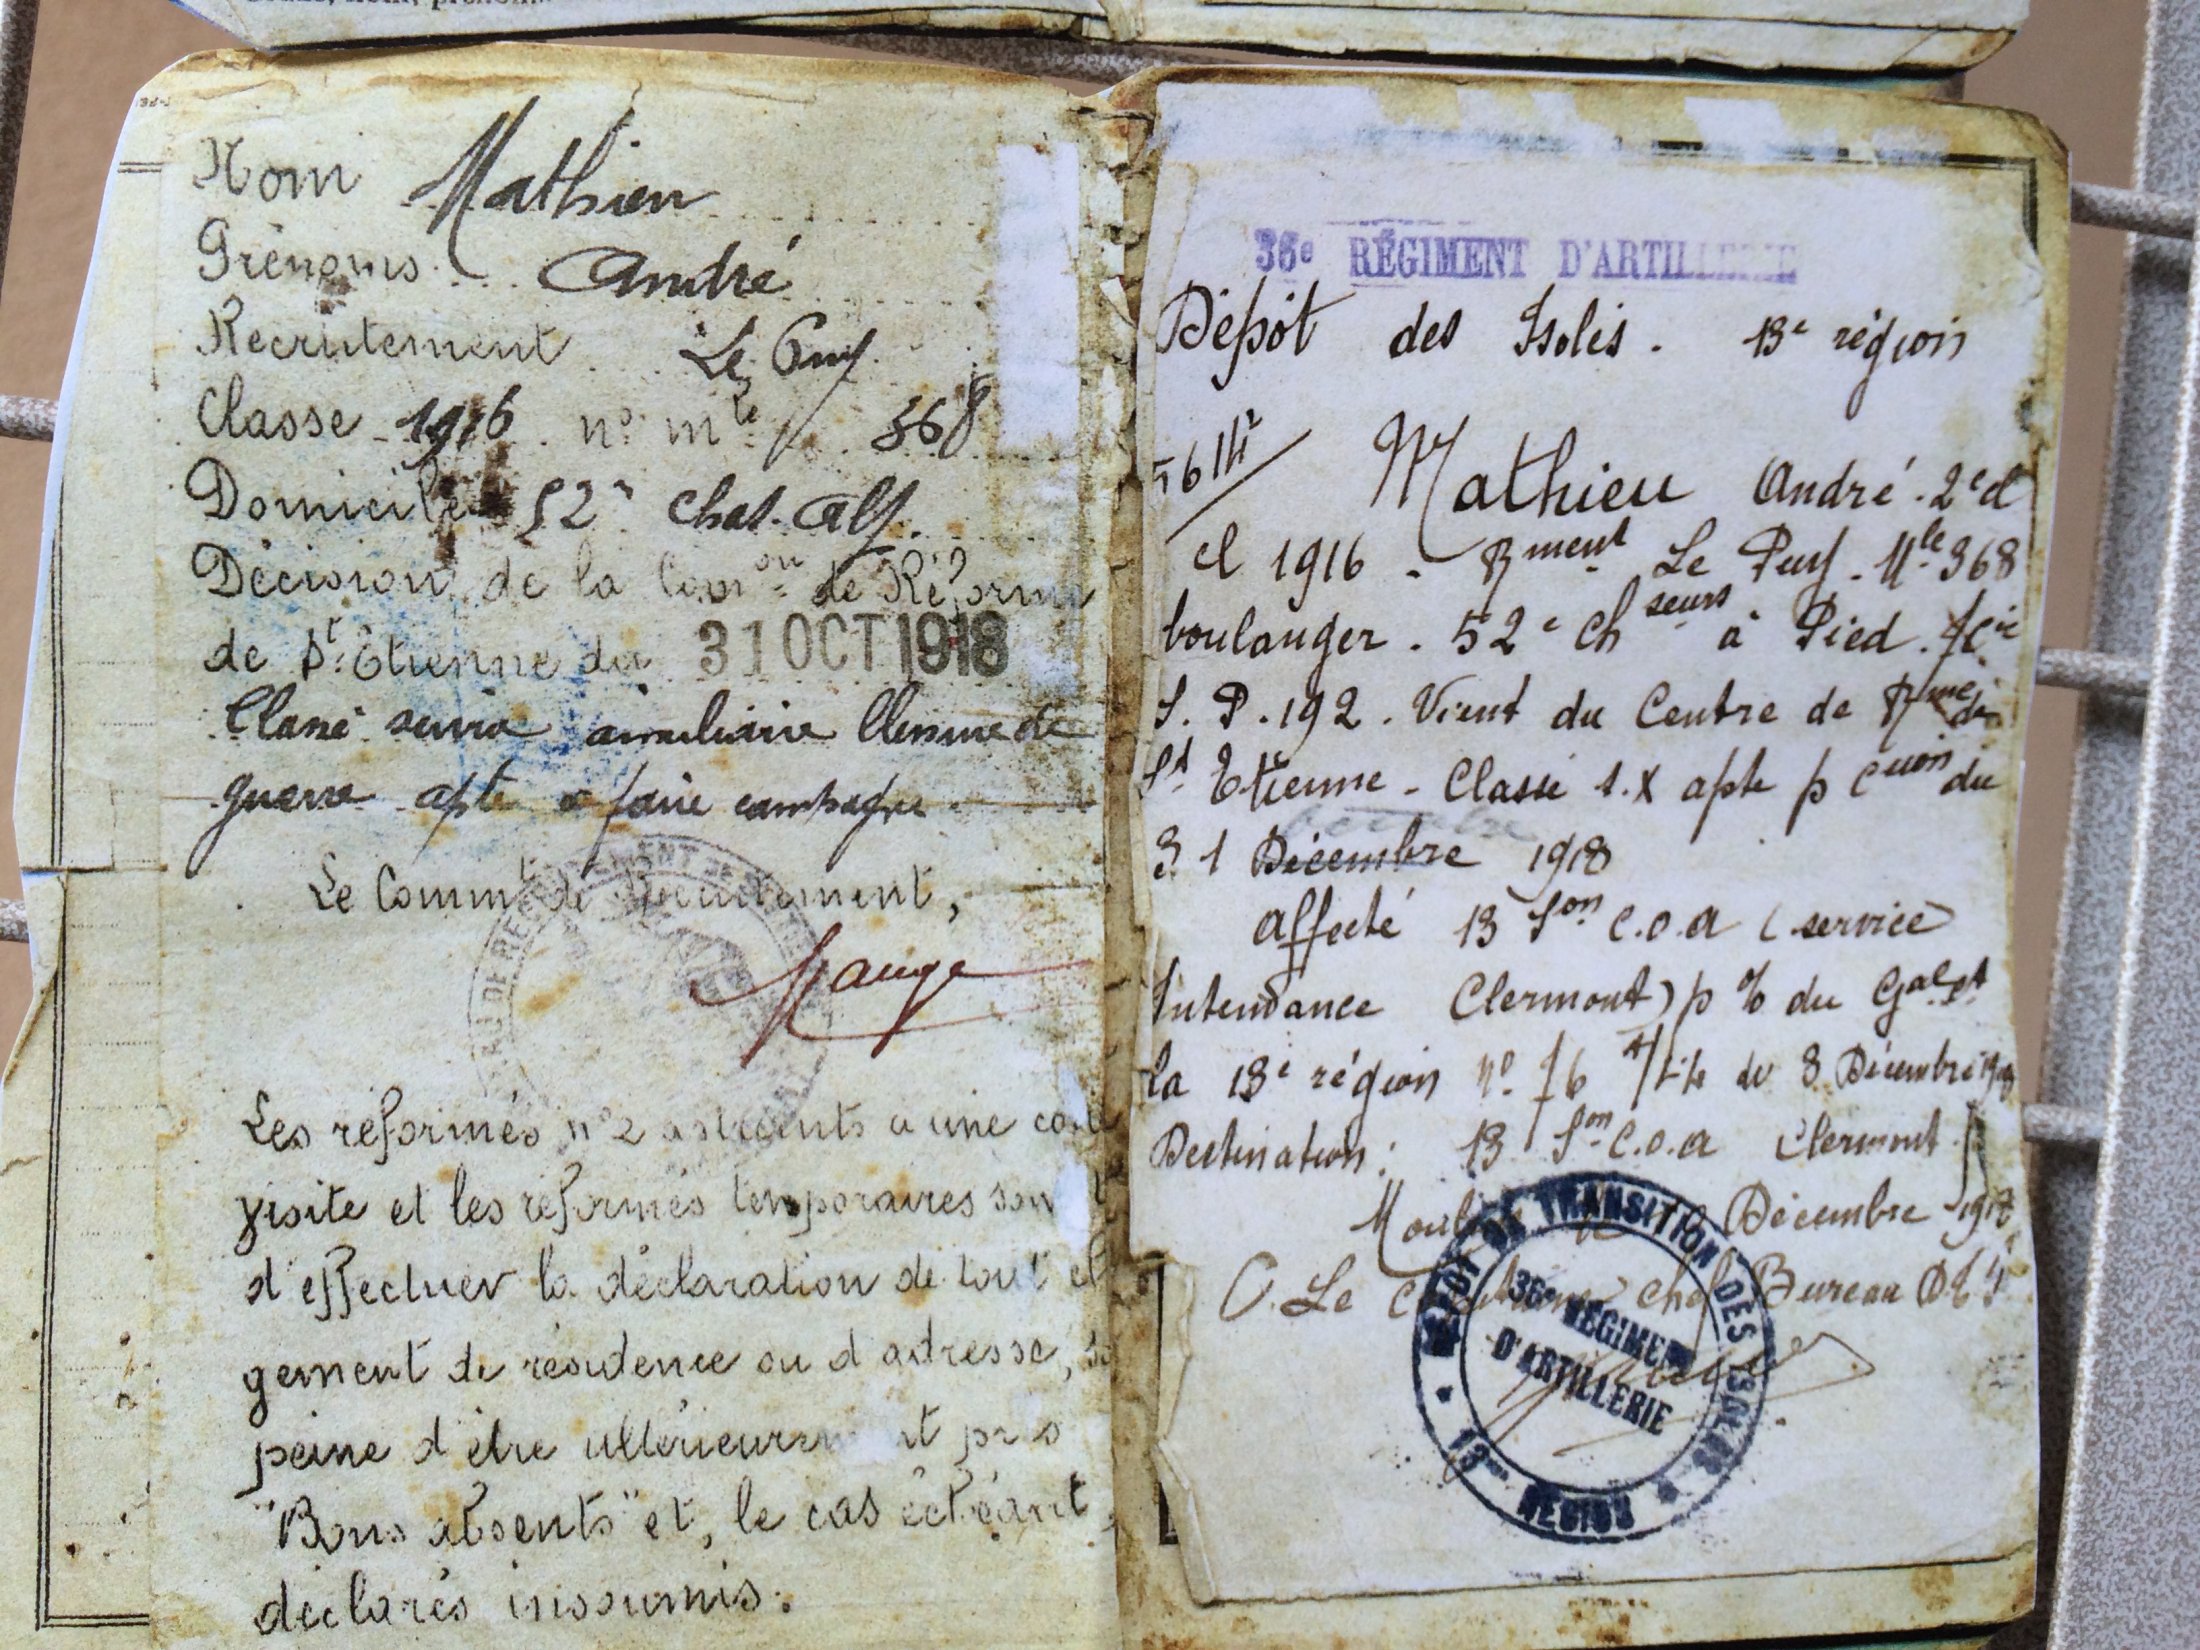 Nom Mathieu
Prénoms André
Recrutement Le Puy
Classe 1916 n° mle 368
Domicile 52e Chas. Alp.
Décision de la Comon de Réforme
de St Etienne du 31 OCT 1918
Classé service auxiliaire
guerre apte à faire campagne
Le Commt de Recrutement,
Les réformés n°2 astreints a une
visite et les réformés temporaires
d'effectuer la déclaration de tout
gement de résidence ou d'adresse,
peine d'être ultérieurement pris
"Bons absents" et, le cas échéant,
déclarés insoumis.
36e RÉGIMENT D'ARTILLERIE
Dépôt des Isolés. 13e région
Mathieu André. 2e
cl 1916 - Rment Le Puy. Mle 368
boulanger. 52e chseurs à Pied
S.P. 192. Vient du Centre de
St Etienne - Classé S.X apte p
31 Décembre 1918
affecté 13 Son C.O.A (service
Intendance Clermont) p % du Gal
la 13e région n° du 8 Décembre 1918
Destination: 13 Son C.O.A Clermont
Moulins Décembre 1918
Le Capitaine chef Bureau
DÉPÔT DE TRANSITION DES ISOLÉS
36e RÉGIMENT
D'ARTILLERIE
13me RÉGION